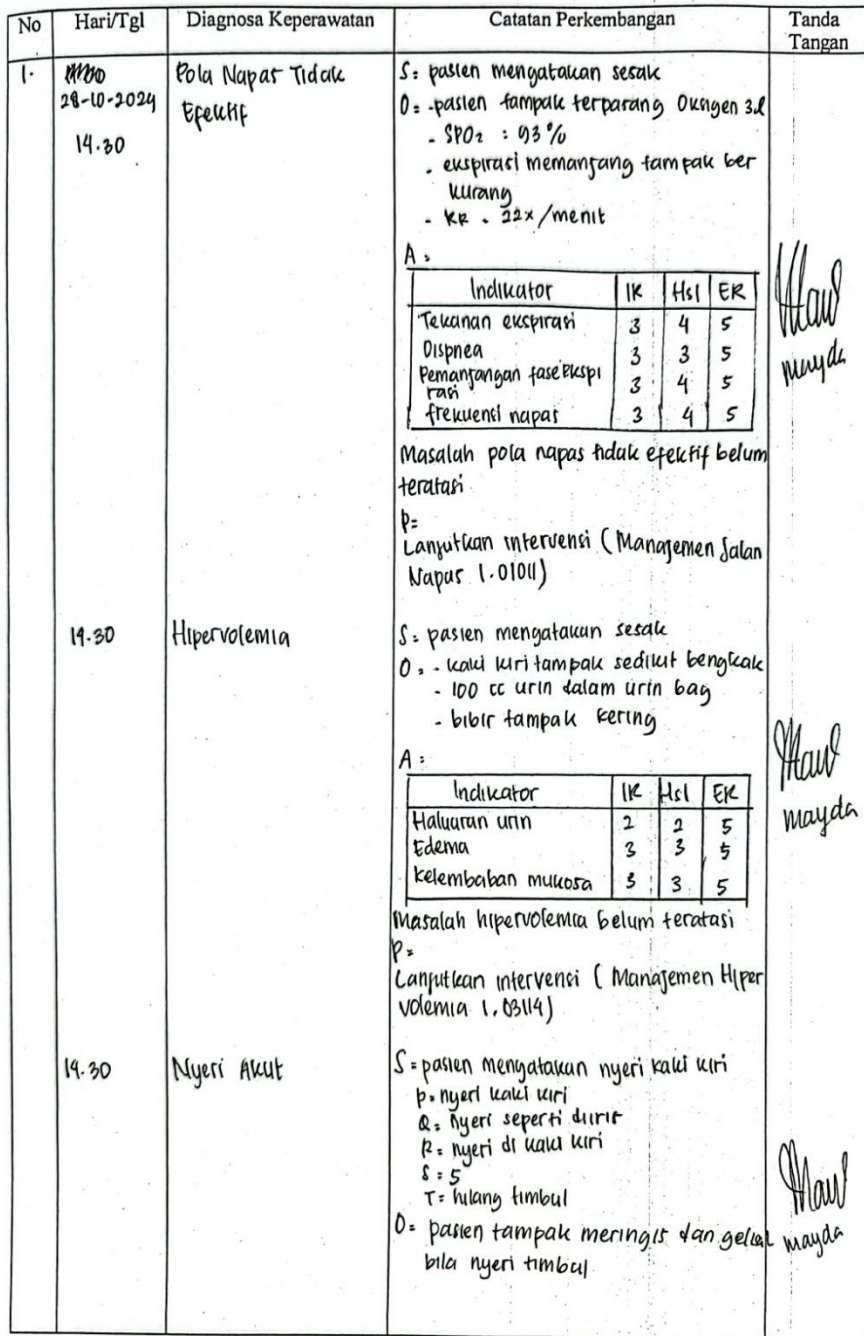 No Hari/Tgl Diagnosa Keperawatan Catatan Perkembangan Tanda Tangan
1. 28-10-2024 14.30 Pola Napas Tidak Efektif
S: pasien mengatakan sesak
O: -pasien tampak terpasang Oksigen 3l
- SPO2 : 93%
- ekspirasi memanjang tampak ber
kurang
- RR . 22x/menit
A :
Indikator IR Hsl ER
Tekanan ekspirasi 3 4 5
Dispnea 3 3 5
Pemanjangan fase ekspi
rasi 3 4 5
frekuensi napas 3 4 5
mayda
Masalah pola napas tidak efektif belum
teratasi
P=
Lanjutkan intervensi (Manajemen Jalan
Napas 1.01011)
14.30 Hipervolemia
S: pasien mengatakan sesak
O: - kaki kiri tampak sedikit bengkak
- 100 cc urin dalam urin bag
- bibir tampak kering
A :
Indikator IR Hsl ER
Haluaran urin 2 2 5
Edema 3 3 5
kelembaban mukosa 3 3 5
mayda
Masalah hipervolemia belum teratasi
P=
Lanjutkan intervensi (Manajemen Hiper
volemia 1.03114)
14.30 Nyeri Akut
S= pasien mengatakan nyeri kaki kiri
P= nyeri kaki kiri
Q= nyeri seperti diiris
R= nyeri di kaki kiri
S = 5
T= hilang timbul
O= pasien tampak meringis dan gelisah
bila nyeri timbul
mayda